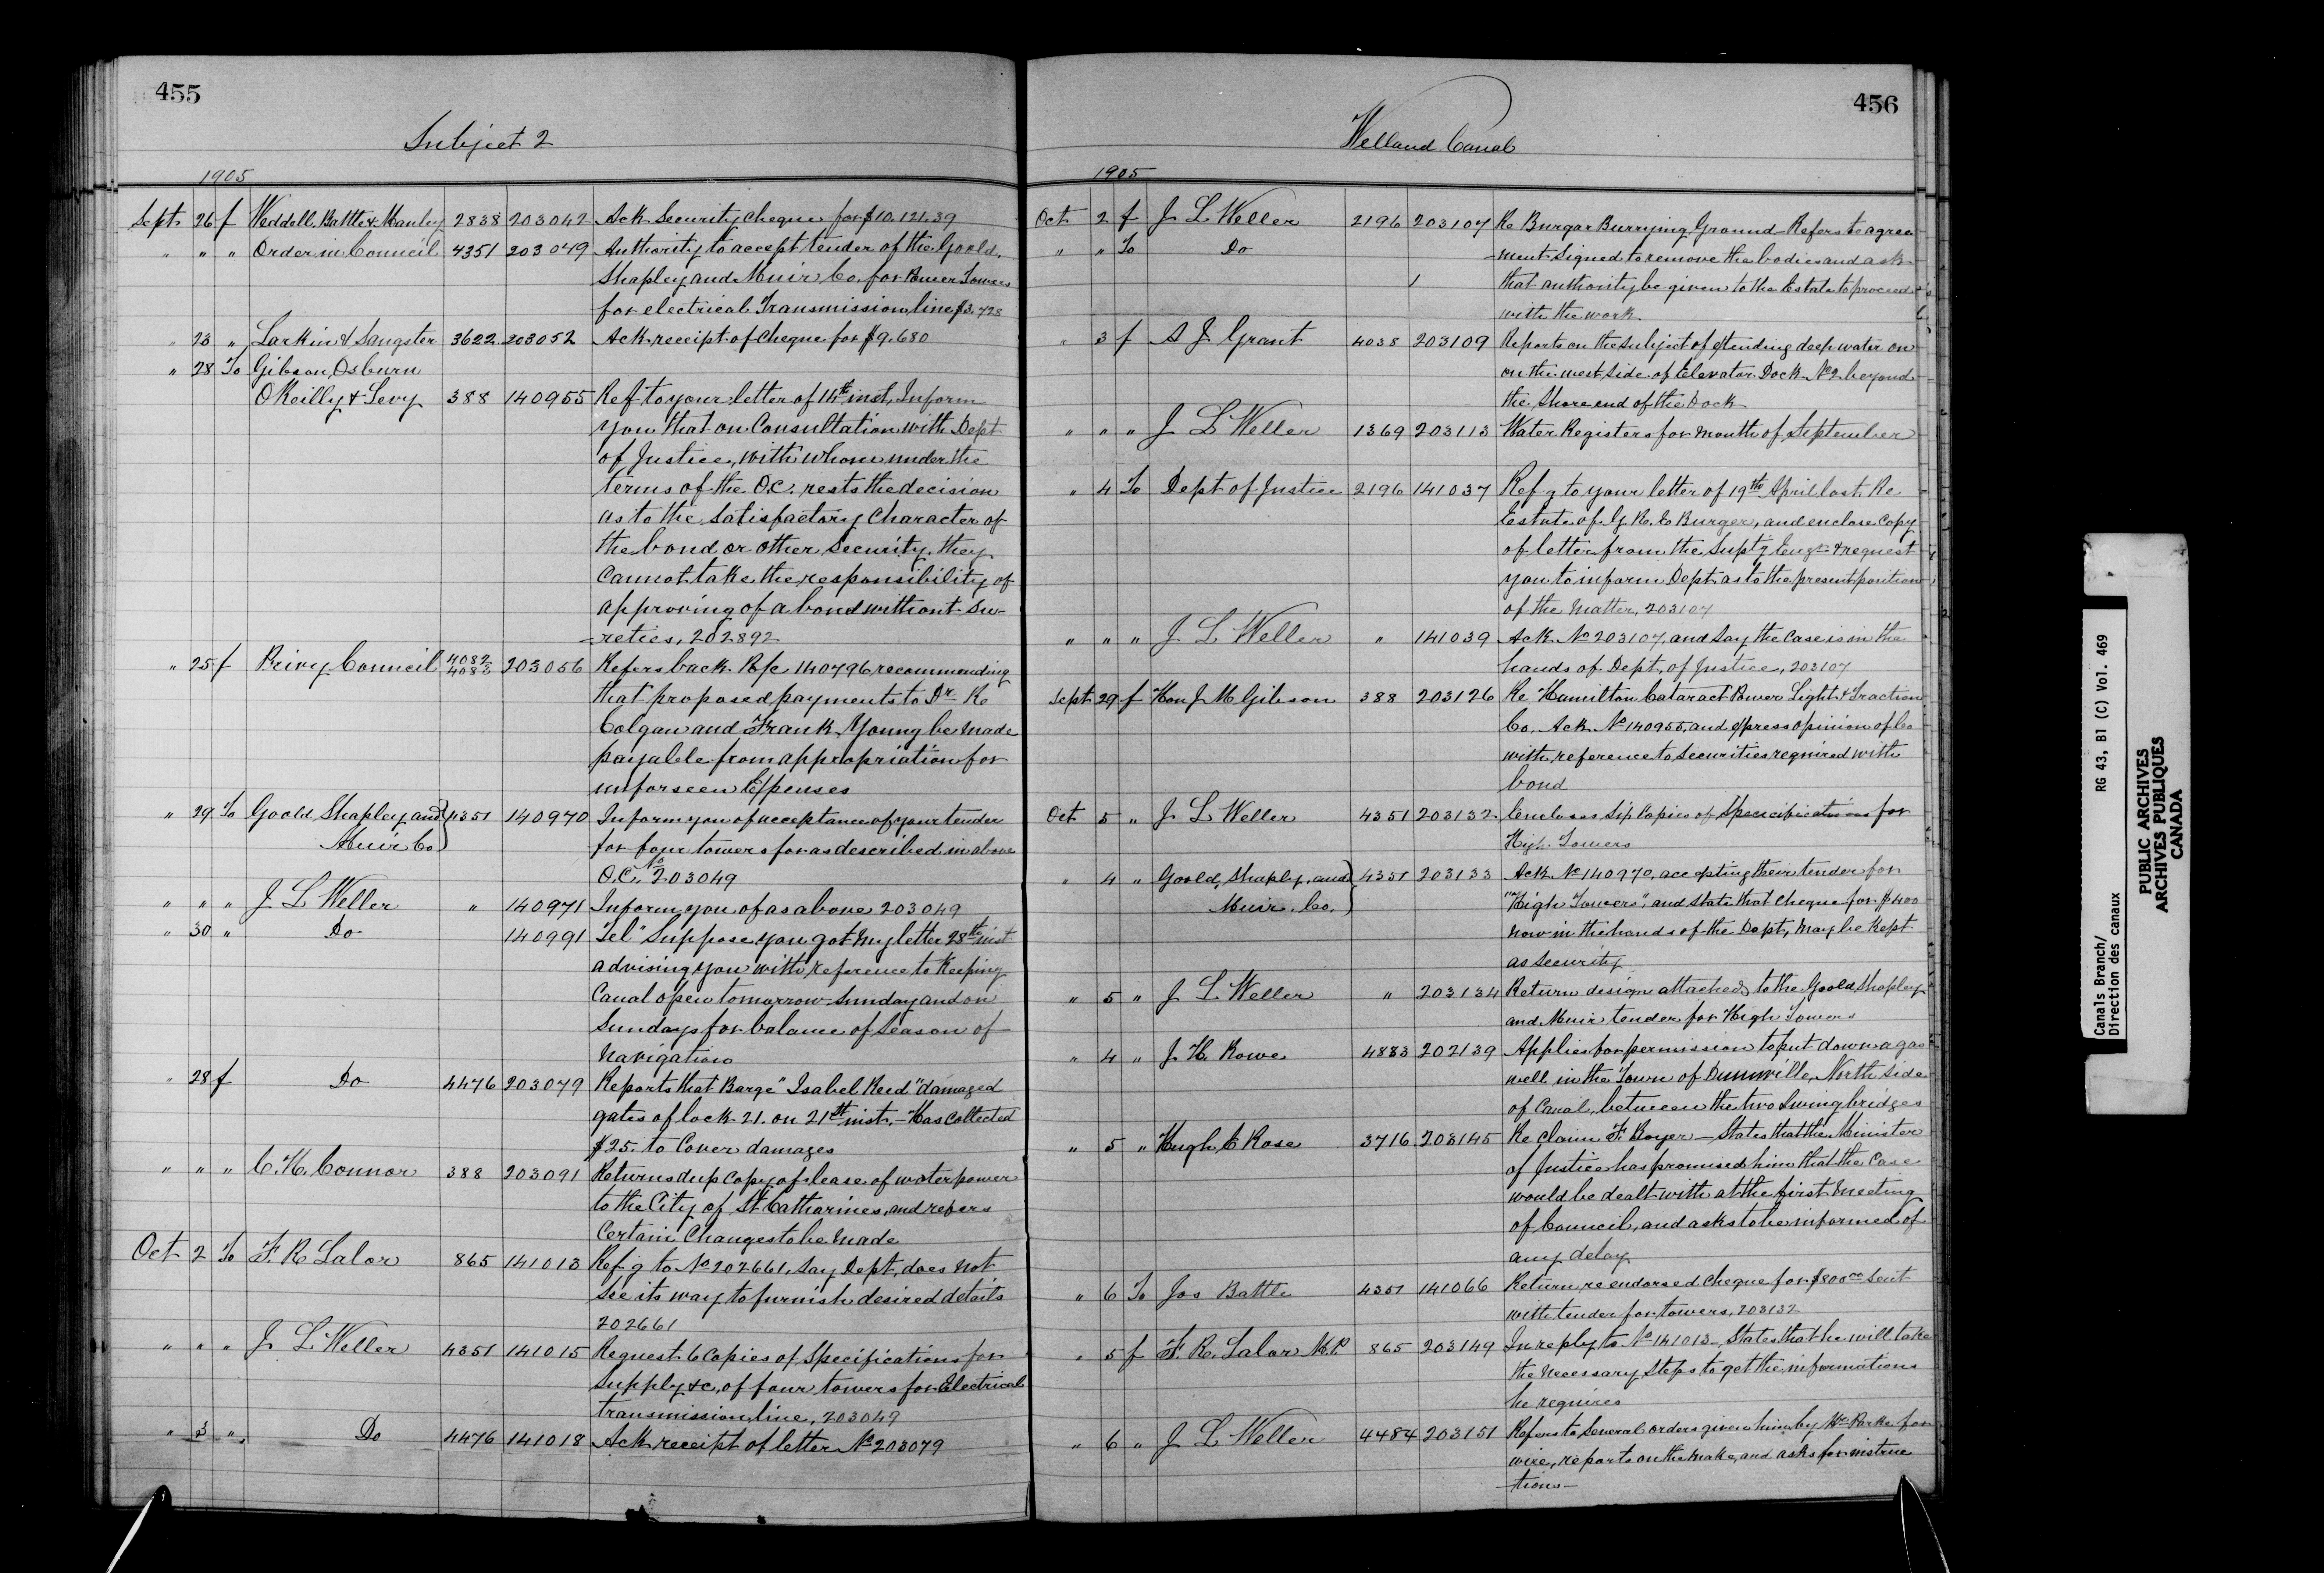 455
Subject 2
1905
Sept 26 f Weddell, Battle & Manley 2838 203042 Ack Security Cheque for $10,121.39
" " " Order in Council 4351 203049 Authority to accept tender of the Goold,
Shapley and Muir Co. for Power Towers
for electrical Transmission line $3,728
" 23 " Larkin & Sangster 3622 203052 Ack receipt of Cheque for $9.680
" 28 To Gibson, Osburn
O'Reilly & Levy 388 140955 Ref to your letter of 14th inst, Inform
you that on Consultation with Dept
of Justice, with whom under the
terms of the O.C. rests the decision
as to the satisfactory Character of
the bond or other Security, they
Cannot take the responsibility of
approving of a bond without Su-
-reties, 202892
" 25 f Privy Council 4082 4083 203056 Refers back R/c 140796 recommending
that proposed payments to Dr. Re
Colgan and Frank Young be made
payable from appropriation for
unforseen Expenses
" 29 To Goold Shapley and } 4351 140970 Inform you of acceptance of your tender
Muir Co } for four towers for as described in above
O.C. No 203049
" " " J L Weller " 140971 Inform you of as above 203049
" 30 " Do 140991 Tel "Suppose you got my letter 28th inst
advising you with reference to Keeping
Canal open tomorrow Sunday and on
Sundays for balance of Season of
Navigation
" 28 f Do 4476 203079 Reports that Barge "Isabel Reed" damaged
gates of lock 21. on 21st inst, - Has collected
$25. to Cover damages
" " " C. H. Connor 388 203091 Returns dup Copy of lease of water power
to the City of St Catharines, and refers
Certain Changes to be made
Oct 2 To F. R Lalor 865 141013 Ref.g to No 202661, Say Dept, does not
See its way to furnish desired details
202661
" " " J L Weller 4351 141015 Request 6 Copies of Specifications for
Supply &c, of four towers for Electrical
transmission line, 203049
" 3 " Do 4476 141018 Ack receipt of letter No 203079
456
Welland Canal
1905
Oct 2 f J L Weller 2196 203107 Re Burgar Burrying Ground - Refers to agree
" " To Do -ment Signed to remove the bodies and ask
that authority be given to the Estate to proceed
with the work.
" 3 f A J Grant 4038 203109 Reports on the subject of extending deep water on
on the west side of Elevator Dock No 2 beyond
the Shore end of the Dock
" " " J L Weller 1369 203113 Water Registers for month of September
" 4 To Dept of Justice 2196 141037 Ref.g to your letter of 19th April last Re
Estate of G. R. E Burger, and enclose Copy
of letter from the Suptg Engr & request
you to inform Dept as to the present position
of the Matter, 203107
" " " J L Weller " 141039 Ack No 203107, and Say the Case is in the
hands of Dept, of Justice, 203107
Sept 29 f Hon J M Gibson 388 203126 Re Hamilton Cataract Power Light & Traction
Co. Ack No 140955, and express opinion of Co
with reference to Securities required with
bond
Oct 5 " J L Weller 4351 203132 Encloses Six Copies of Specicifications for
High Towers
" 4 " Goold, Shapley, and } 4351 203133 Ack No 140970, accepting their tender for
Muir Co. } "High Towers", and State that Cheque for $400
now in the hands of the Dept, may be Kept
as Security
" 5 " J L Weller " 203134 Return design attached to the Goold, Shapley
and Muir tender for High Towers
" 4 " J H Rowe 4883 202139 Applies for permission to put down a gas
well in the Town of Dunnville, North Side
of Canal, between the two Swing bridges
" 5 " Hugh E Rose 3716 203145 Re Claim F. Boyer - States that the Minister
of Justice has promised him that the Case
would be dealt with at the first Meeting
of Council, and asks to be informed of
any delay
" 6 To Jos Battle 4351 141066 Return, re endorsed Cheque for $800.00 Sent
with tender for towers, 203132
" 5 f F. R. Lalor M.P. 865 203149 In reply to No 141013 - States that he will take
the Necessary Steps to get the informations
he requires
" 6 " J L Weller 4484 203151 Refers to Several orders given him by Wm Parke for
wire, reports on the make, and asks for instruc
-tions-
Canals Branch/ RG 43, B1 (C) Vol. 469
Direction des canaux
PUBLIC ARCHIVES
ARCHIVES PUBLIQUES
CANADA